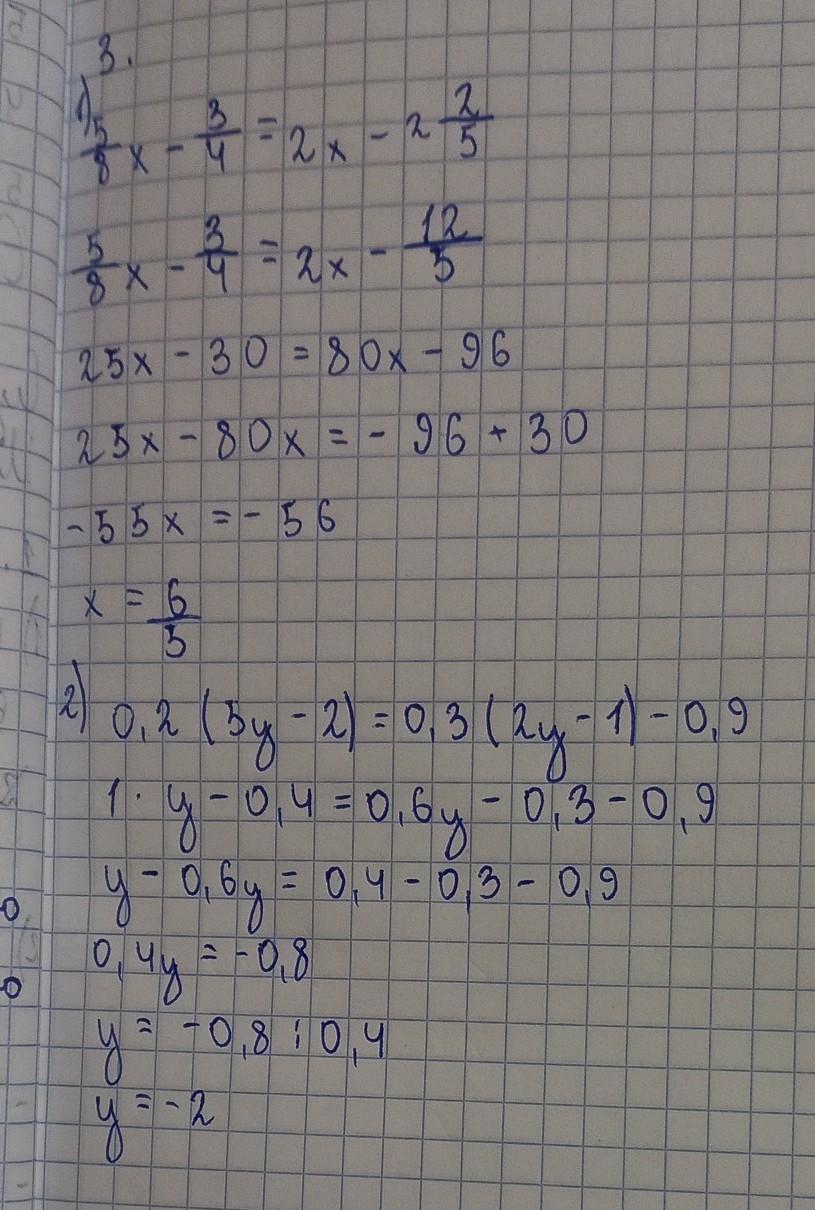 3.
1) 5/8 x - 3/4 = 2x - 2 2/5
5/8 x - 3/4 = 2x - 12/5
25x - 30 = 80x - 96
25x - 80x = - 96 + 30
-55x = - 56
x = 6/5
2) 0,2 (5y - 2) = 0,3 (2y - 1) - 0,9
1 · y - 0,4 = 0,6y - 0,3 - 0,9
y - 0,6y = 0,4 - 0,3 - 0,9
0,4y = -0,8
y = -0,8 : 0,4
y = -2